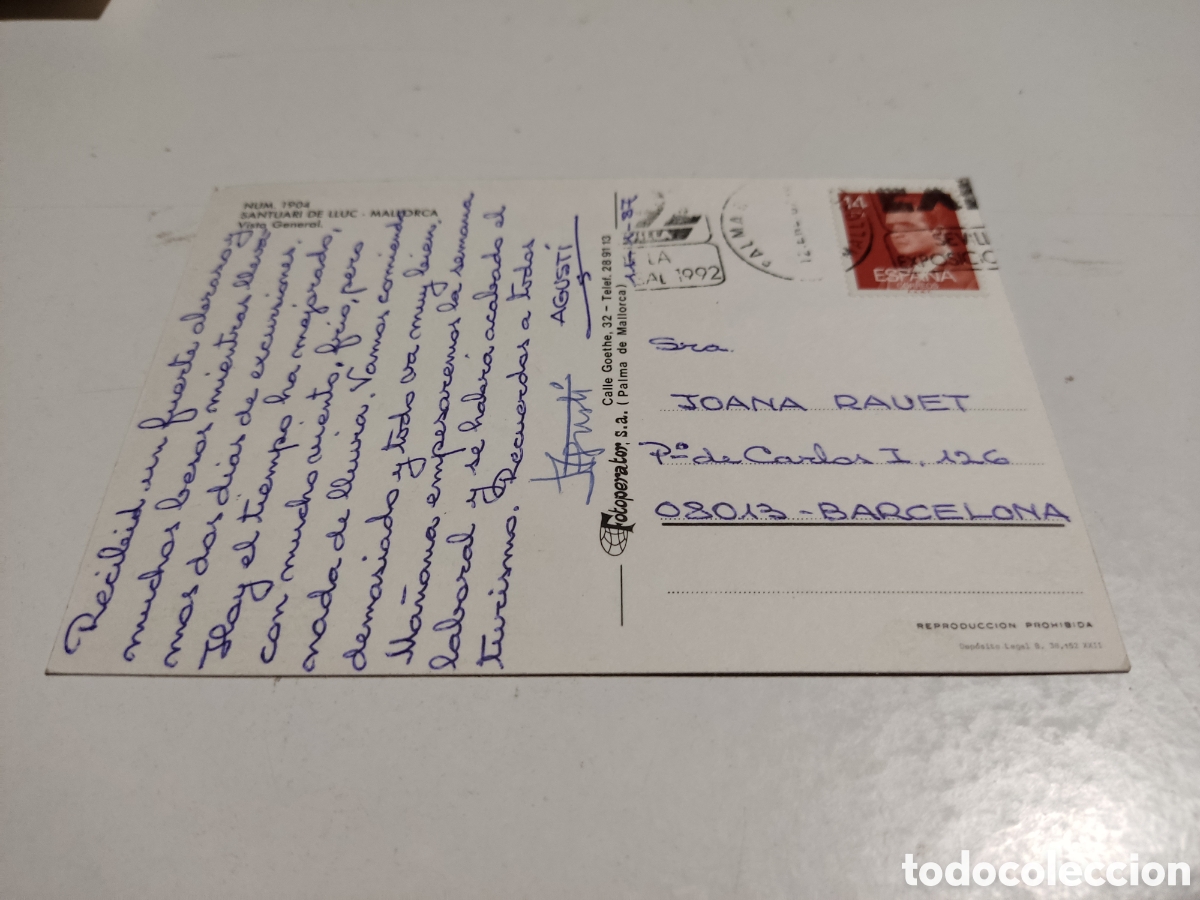 NUM. 1904
SANTUARI DE LLUC - MALLORCA
Vista General.
Recibid un fuerte abrazo y
muchos besos mientras lleva-
mos dos días de excursiones.
Hoy el tiempo ha mejorado,
con mucho viento, frío, pero
nada de lluvia. Vamos comiendo
demasiado y todo va muy bien.
Mañana empezaremos la semana
laboral y se habrá acabado el
turismo. Recuerdos a todos
AGUSTÍ
Agustí
15-XI-87
Fotoperator, s.a. Calle Goethe, 32 - Telef. 28 91 13
(Palma de Mallorca)
LA
1992
PALMA
MALLOR
SEVILL
EXPOSICO
14
ESPAÑA
Sra.
JOANA RAUET
Pº de Carlos I, 126
08013 - BARCELONA
REPRODUCCION PROHIBIDA
Depósito Legal B.
todocoleccion